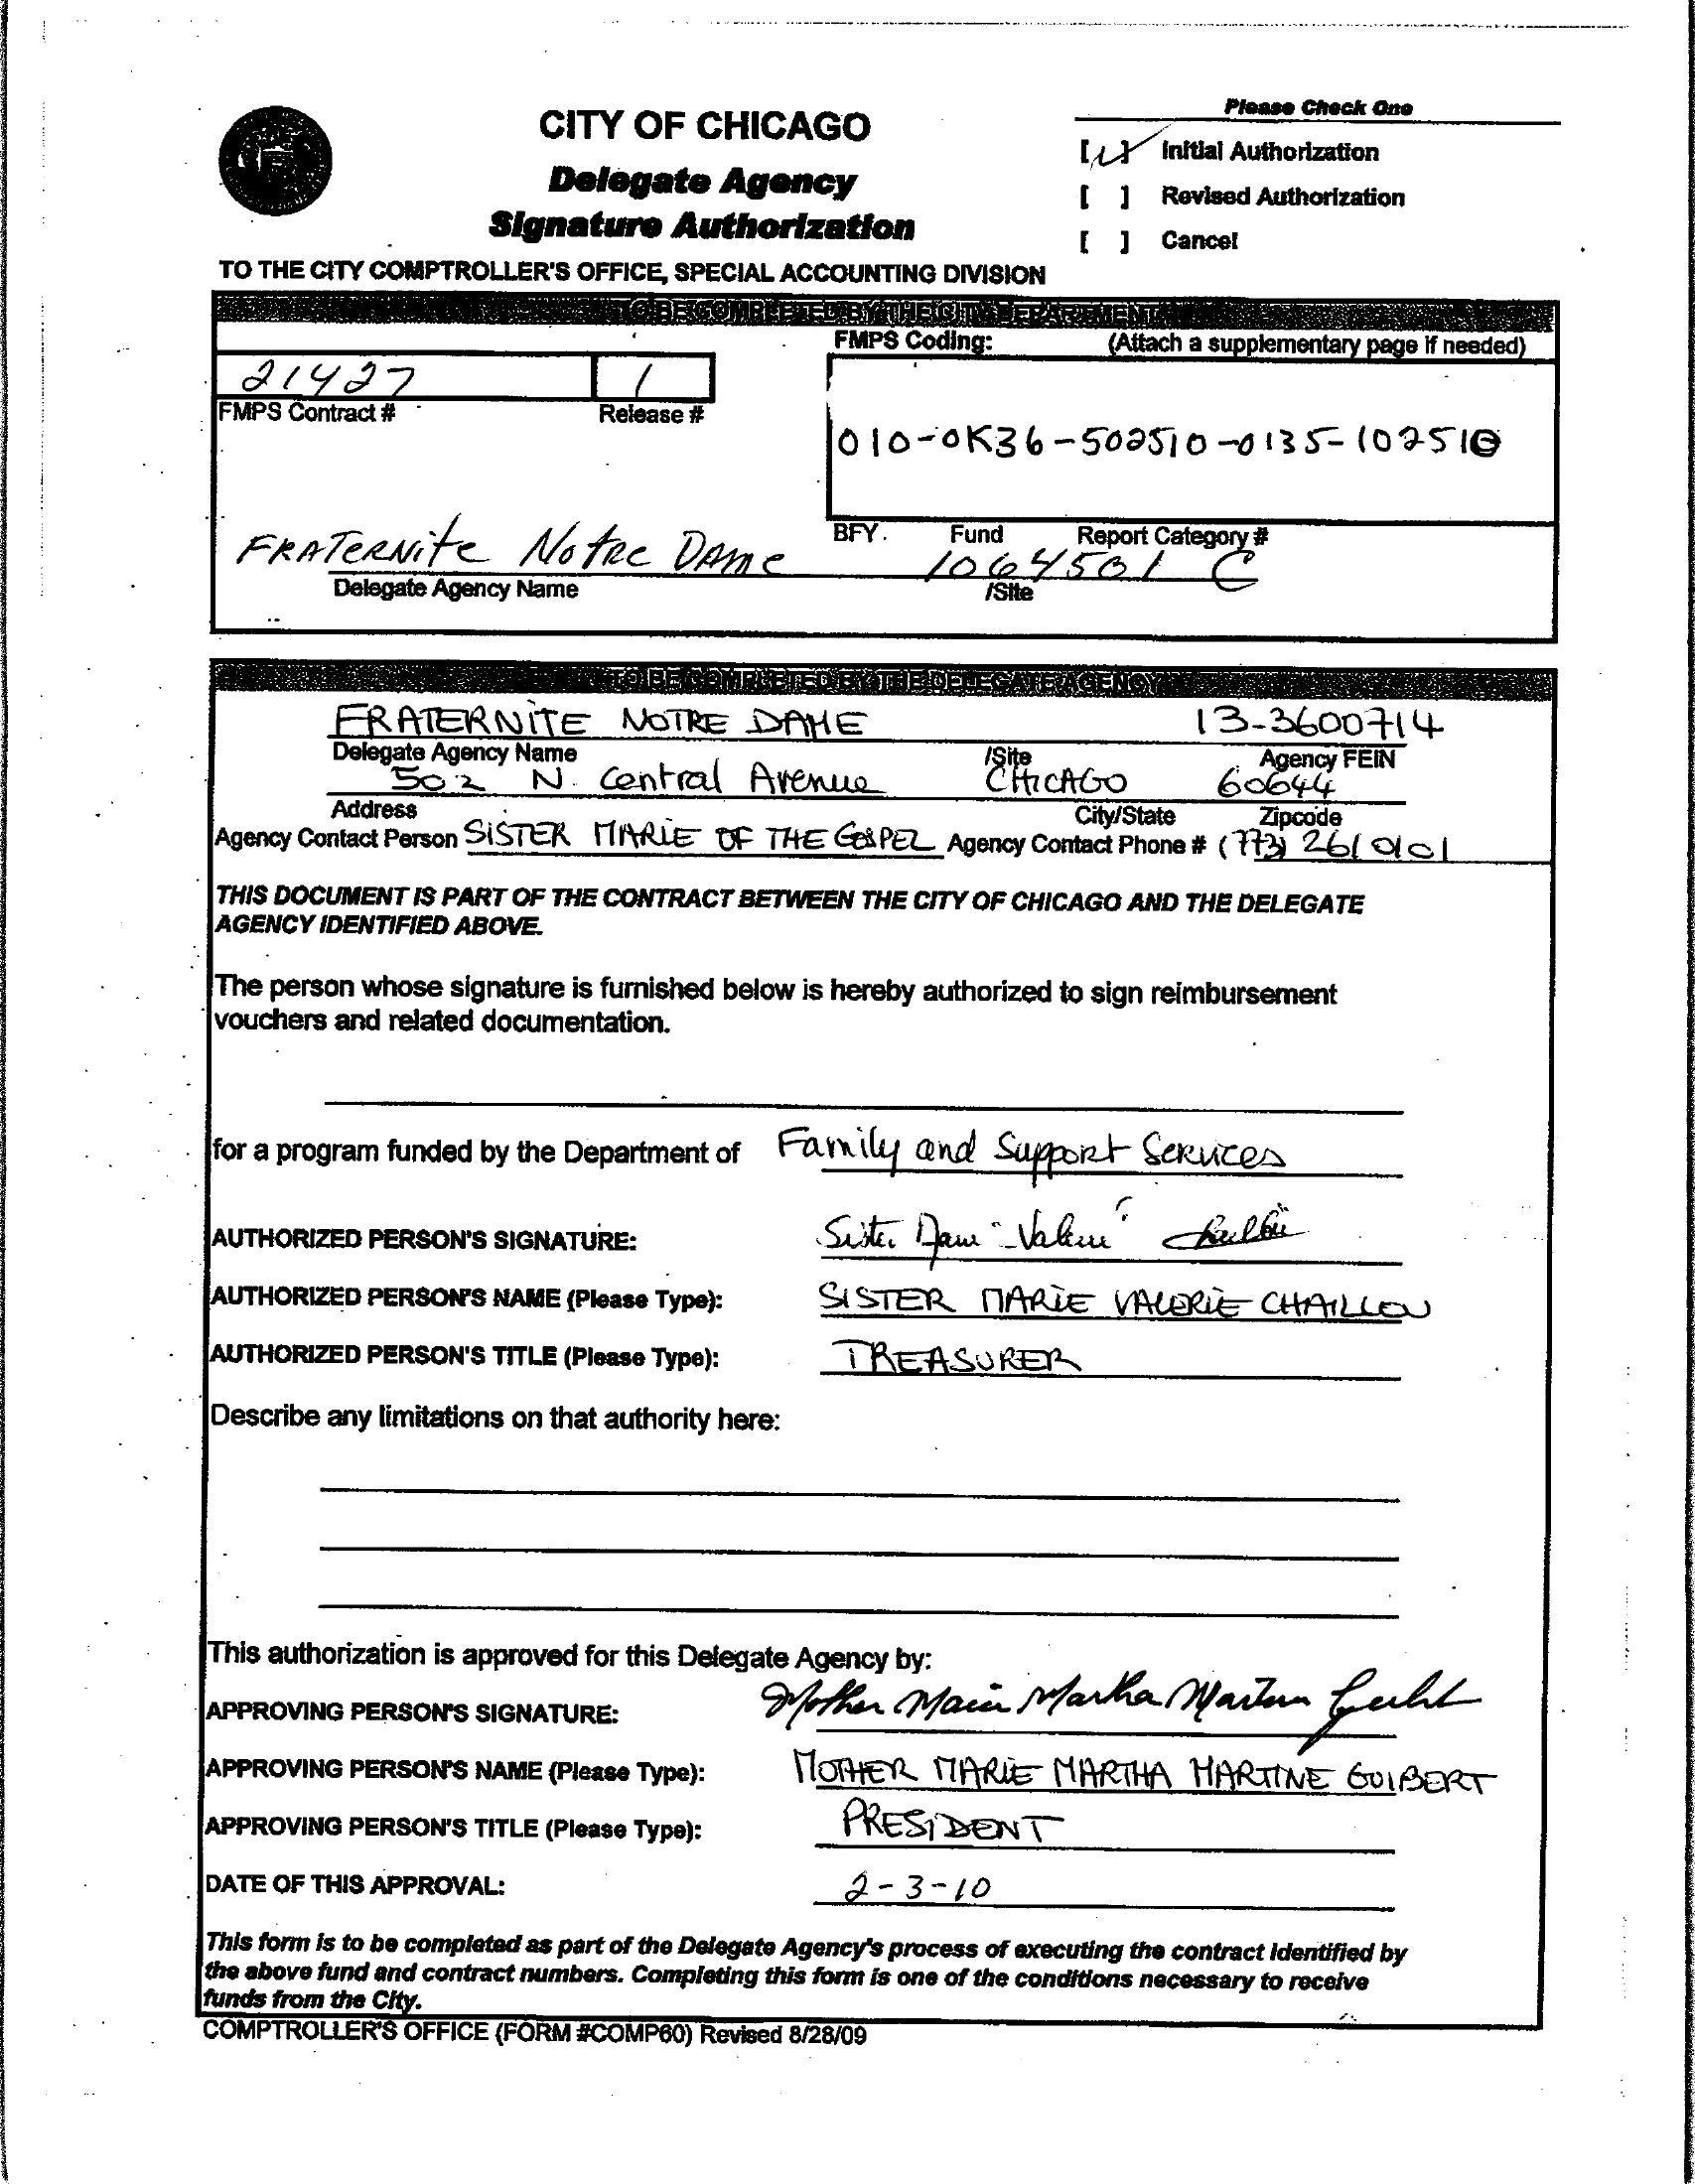 Please Check One
CITY OF CHICAGO
Delegate Agency
Signature Authorization
[✓] Initial Authorization
[ ] Revised Authorization
[ ] Cancel
TO THE CITY COMPTROLLER'S OFFICE, SPECIAL ACCOUNTING DIVISION
TO BE COMPLETED BY THE CITY DEPARTMENT
FMPS Coding: (Attach a supplementary page if needed)
21427 1
FMPS Contract # Release #
010-0K36-502510-0135-102510
BFY. Fund Report Category #
FRATERNITE NOTRE DAME 1064501 C
Delegate Agency Name /Site
TO BE COMPLETED BY THE DELEGATE AGENCY
FRATERNITE NOTRE DAME 13-3600714
Delegate Agency Name /Site Agency FEIN
502 N. Central Avenue CHICAGO 60644
Address City/State Zipcode
Agency Contact Person SISTER MARIE OF THE GOSPEL Agency Contact Phone # (773) 261 0101
THIS DOCUMENT IS PART OF THE CONTRACT BETWEEN THE CITY OF CHICAGO AND THE DELEGATE
AGENCY IDENTIFIED ABOVE.
The person whose signature is furnished below is hereby authorized to sign reimbursement
vouchers and related documentation.
for a program funded by the Department of Family and Support Services
AUTHORIZED PERSON'S SIGNATURE: Sister
AUTHORIZED PERSON'S NAME (Please Type): SISTER MARIE VALERIE CHAILLOU
AUTHORIZED PERSON'S TITLE (Please Type): TREASURER
Describe any limitations on that authority here:
This authorization is approved for this Delegate Agency by:
APPROVING PERSON'S SIGNATURE: Mother Marie Martha Martine
APPROVING PERSON'S NAME (Please Type): MOTHER MARIE MARTHA MARTINE GUIBERT
APPROVING PERSON'S TITLE (Please Type): PRESIDENT
DATE OF THIS APPROVAL: 2-3-10
This form is to be completed as part of the Delegate Agency's process of executing the contract identified by
the above fund and contract numbers. Completing this form is one of the conditions necessary to receive
funds from the City.
COMPTROLLER'S OFFICE (FORM #COMP60) Revised 8/28/09